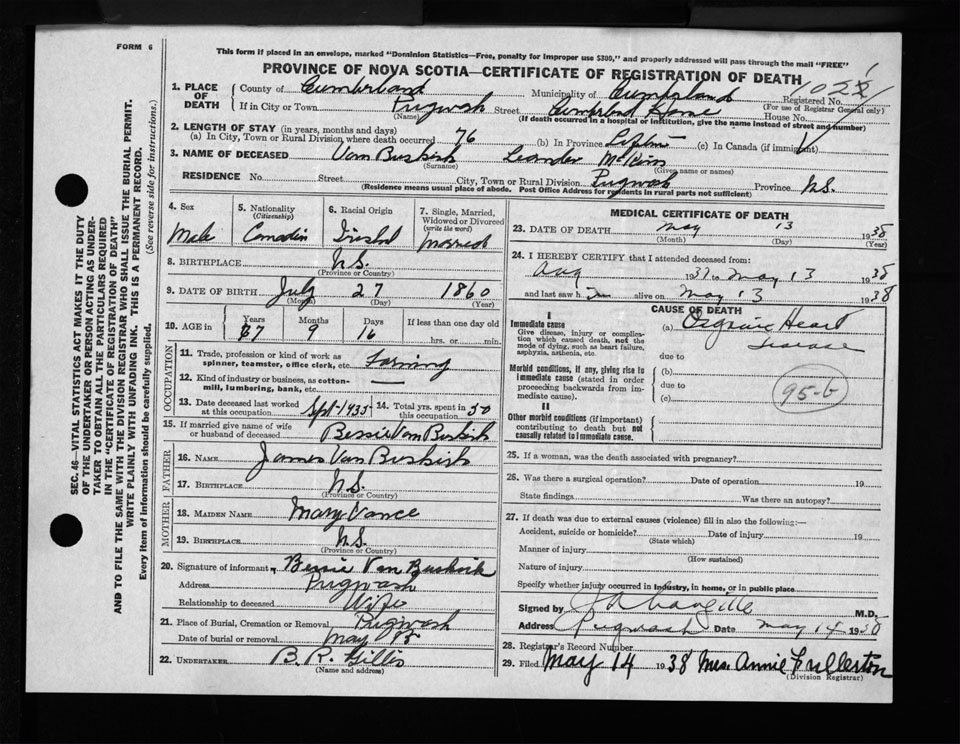 FORM 6
This form if placed in an envelope, marked "Dominion Statistics—Free, penalty for improper use $300," and properly addressed will pass through the mail "FREE"
PROVINCE OF NOVA SCOTIA—CERTIFICATE OF REGISTRATION OF DEATH
1. PLACE OF DEATH
County of Cumberland Municipality of Cumberland Registered No.
(For use of Registrar General only)
If in City or Town Pugwash Street House No.
(Name) (If death occurred in a hospital or institution, give the name instead of street and number)
2. LENGTH OF STAY (in years, months and days)
(a) In City, Town or Rural Division where death occurred 76 (b) In Province Lifetime (c) In Canada (if immigrant)
3. NAME OF DECEASED Van Buskirk Leander McKim
(Surname) (Given name or names)
RESIDENCE No. Street City, Town or Rural Division Pugwash Province N.S.
(Residence means usual place of abode. Post Office Address for residents in rural parts not sufficient)
4. Sex Male
5. Nationality (Citizenship) Canadian
6. Racial Origin Irish
7. Single, Married, Widowed or Divorced (write the word) Married
8. BIRTHPLACE N.S.
(Province or Country)
9. DATE OF BIRTH July 27 1860
(Month) (Day) (Year)
10. AGE in Years Months Days If less than one day old
77 9 16 hrs. or min.
OCCUPATION
11. Trade, profession or kind of work as spinner, teamster, office clerk, etc. Farming
12. Kind of industry or business, as cotton-mill, lumbering, bank, etc. —
13. Date deceased last worked at this occupation Sept-1935 14. Total yrs. spent in this occupation 50
15. If married give name of wife or husband of deceased Bessie Van Buskirk
FATHER
16. NAME James Van Buskirk
17. BIRTHPLACE N.S.
(Province or Country)
MOTHER
18. MAIDEN NAME Mary Vance
19. BIRTHPLACE N.S.
(Province or Country)
20. Signature of informant Bessie Van Buskirk
Address Pugwash
Relationship to deceased Wife
21. Place of Burial, Cremation or Removal Pugwash
Date of burial or removal May 15
22. UNDERTAKER B. R. Gillis
(Name and address)
MEDICAL CERTIFICATE OF DEATH
23. DATE OF DEATH May 13 1938
(Month) (Day) (Year)
24. I HEREBY CERTIFY that I attended deceased from:
Aug 1937 to May 13 1938
and last saw him alive on May 13 1938
CAUSE OF DEATH
I
Immediate cause
Give disease, injury or complication which caused death, not the mode of dying, such as heart failure, asphyxia, asthenia, etc.
(a) Organic Heart Disease
due to
Morbid conditions, if any, giving rise to immediate cause (stated in order proceeding backwards from immediate cause).
(b)
due to
(c)
95-b
II
Other morbid conditions (if important) contributing to death but not causally related to immediate cause.
25. If a woman, was the death associated with pregnancy?
26. Was there a surgical operation? Date of operation 19
State findings Was there an autopsy?
27. If death was due to external causes (violence) fill in also the following:—
Accident, suicide or homicide? Date of injury 19
(State which)
Manner of injury
(How sustained)
Nature of injury
Specify whether injury occurred in industry, in home, or in public place
Signed by M.D.
Address Pugwash Date May 14 1938
28. Registrar's Record Number
29. Filed May 14 1938 Mrs. Annie Fullerton
(Division Registrar)
SEC. 46—VITAL STATISTICS ACT MAKES IT THE DUTY
OF THE UNDERTAKER OR PERSON ACTING AS UNDER-
TAKER TO OBTAIN ALL THE PARTICULARS REQUIRED
IN THE "CERTIFICATE OF REGISTRATION OF DEATH"
AND TO FILE THE SAME WITH THE DIVISION REGISTRAR WHO SHALL ISSUE THE BURIAL PERMIT.
WRITE PLAINLY WITH UNFADING INK. THIS IS A PERMANENT RECORD.
Every item of information should be carefully supplied. (See reverse side for instructions.)